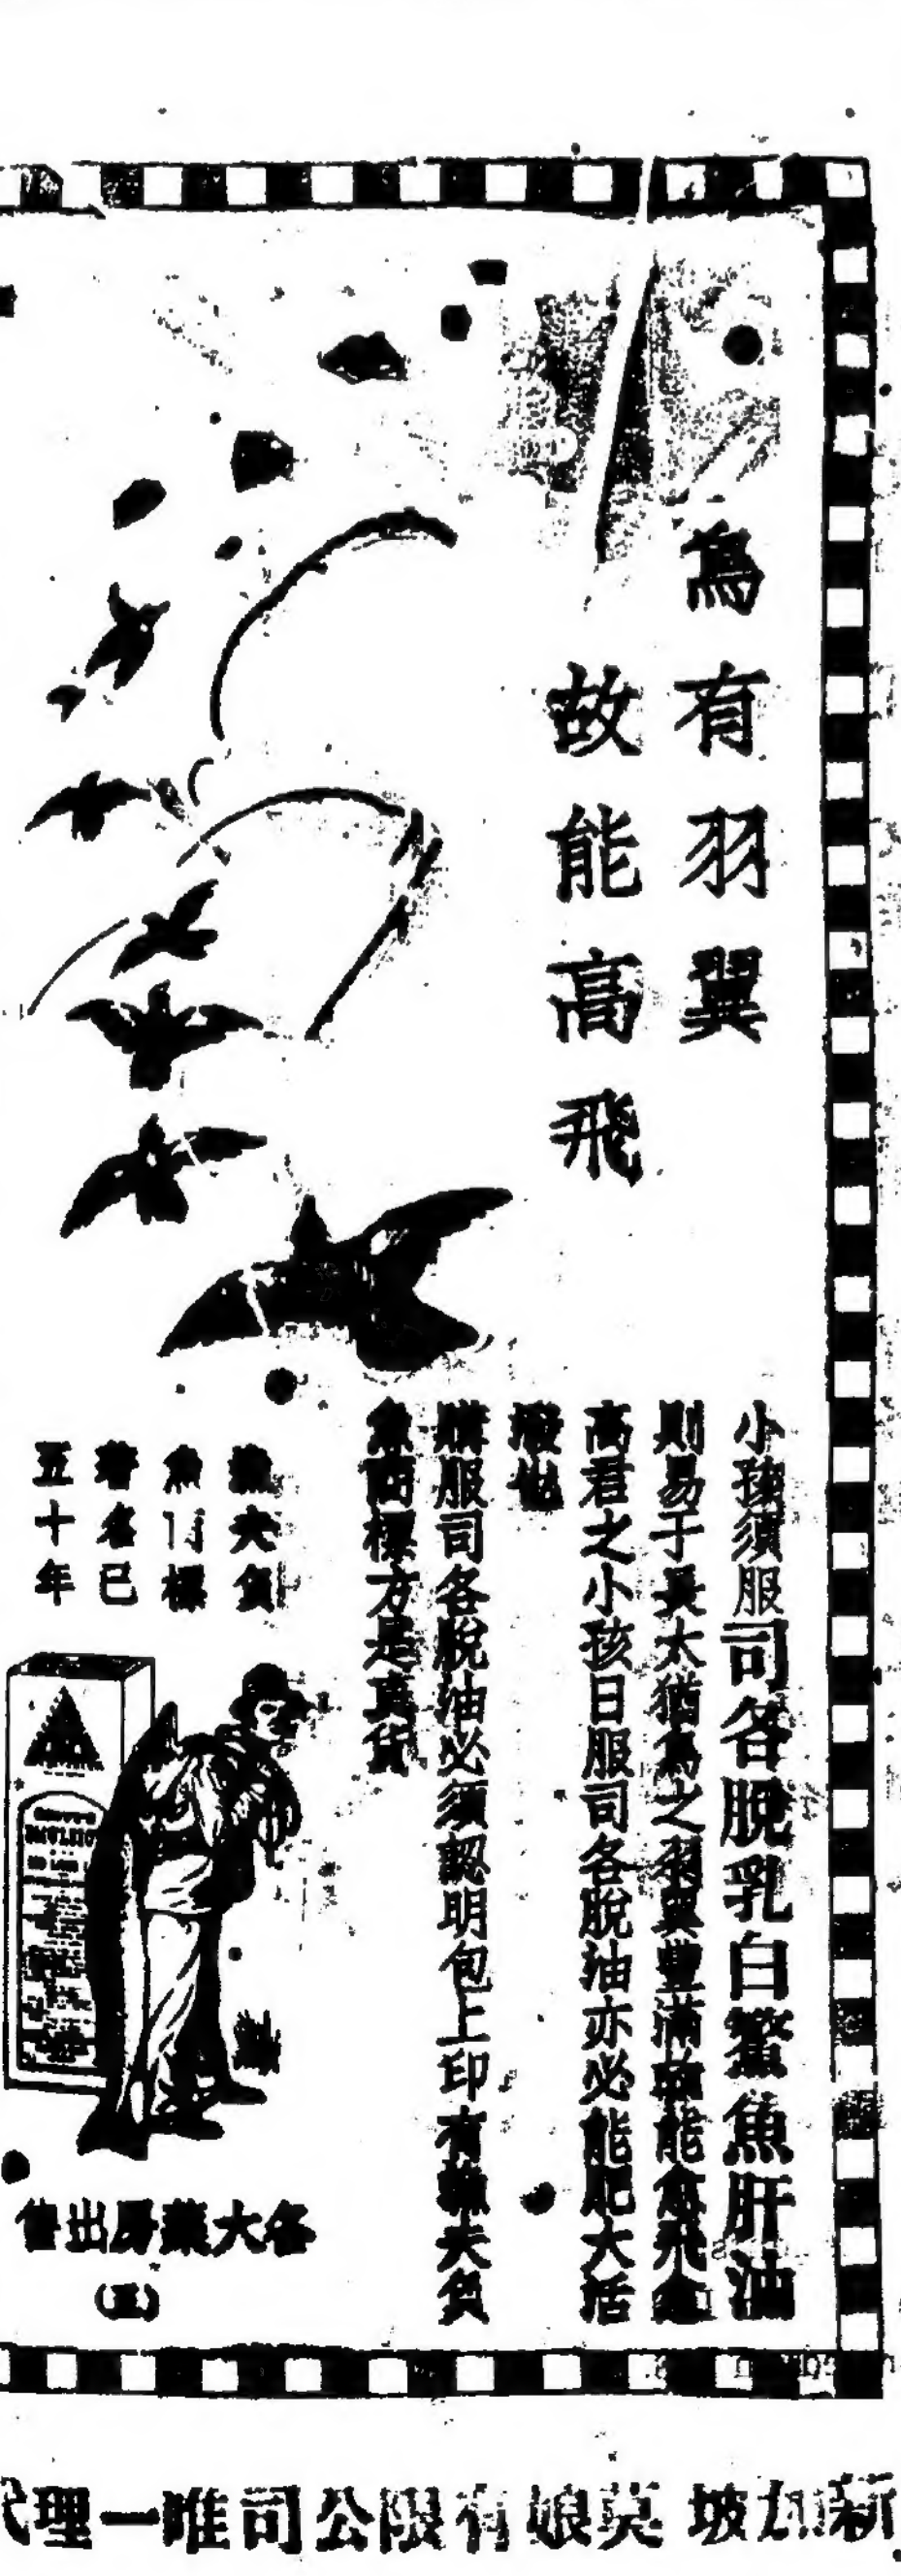 為有羽翼
故能高飛
小孩須服司各脫乳白鰵魚肝油
則易于長大猶鳥之羽翼豐滿故能愈飛愈
高君之小孩日服司各脫油亦必能肥大活
潑也
購服司各脫油必須認明包上印有漁夫負
魚商標方是真貨
漁夫負
魚商標
著名已
五十年
SCOTT'S
EMULSION
各大藥房出售
(五)
新加坡 莫娘有限公司唯一理代